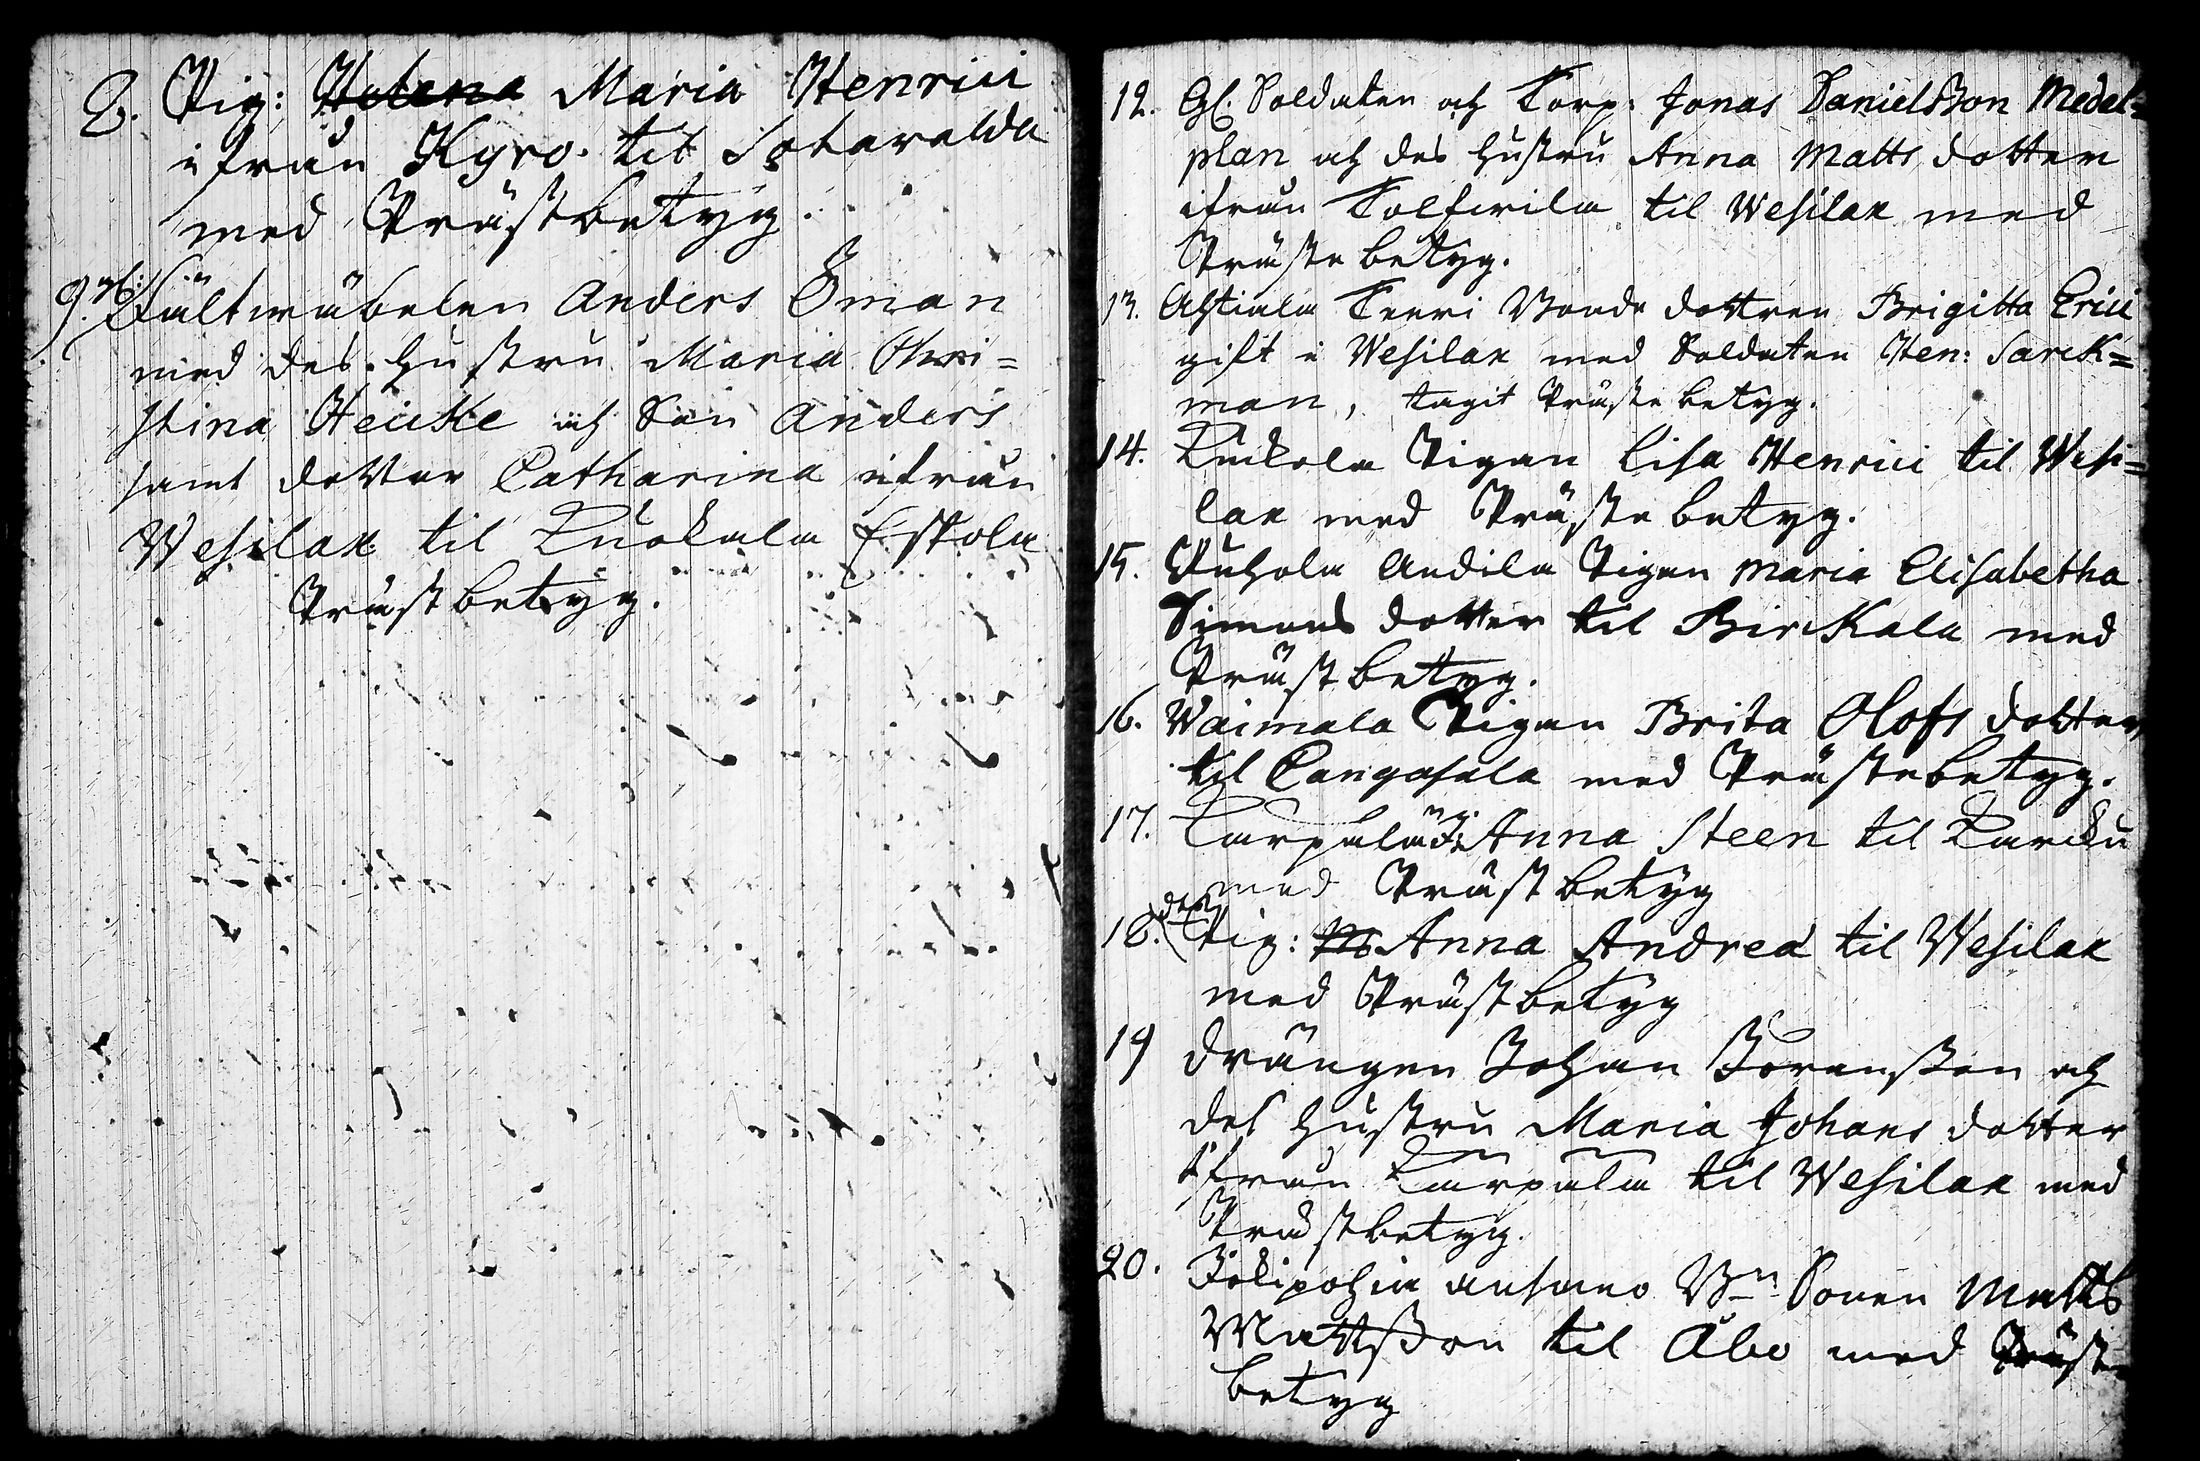 8. Pig: Helena Maria Henrici
ifrån Kyro. til Sotavalda
med Prästbetyg.
9. Fältwäbelen Anders Öman
med des hustru Maria Chri=
stina Heicke och Son Anders
samt dotter Catharina ifrån
Wesilax til Kuokala Eskola
Prästbetyg.
12. Gl. Soldaten och Corp: Jonas Danielsson Medel=
plan och des hustru Anna Matts dotter
ifrån til Wesilax med
Präste betyg.
13. Ahtiala Bonde dottren Brigitta Erici
gift i Wesilax med Soldaten Hen: Sarck=
man, tagit Präste betyg.
14. Kuckola Pigan Lisa Henrici til Wesi=
lax med Präste betyg.
15. Andila Pigan Maria Elisabetha
Simons dotter til Birckala med
Präst betyg.
16. Waimala Pigan Brita Olofs dotter
til Cangasala med Prästebetyg.
17. Anna Steen til Karcku
med Präst betyg
18. Pig: Anna Andrea til Wesilax
med Prästbetyg
19 Drängen Johan Göransson och
des hustru Maria Johans dotter
ifrån Karpala til Wesilax med
Prästbetyg.
20. Jokipohja Sonen Matts
Mattsson til Åbo med Präste
betyg